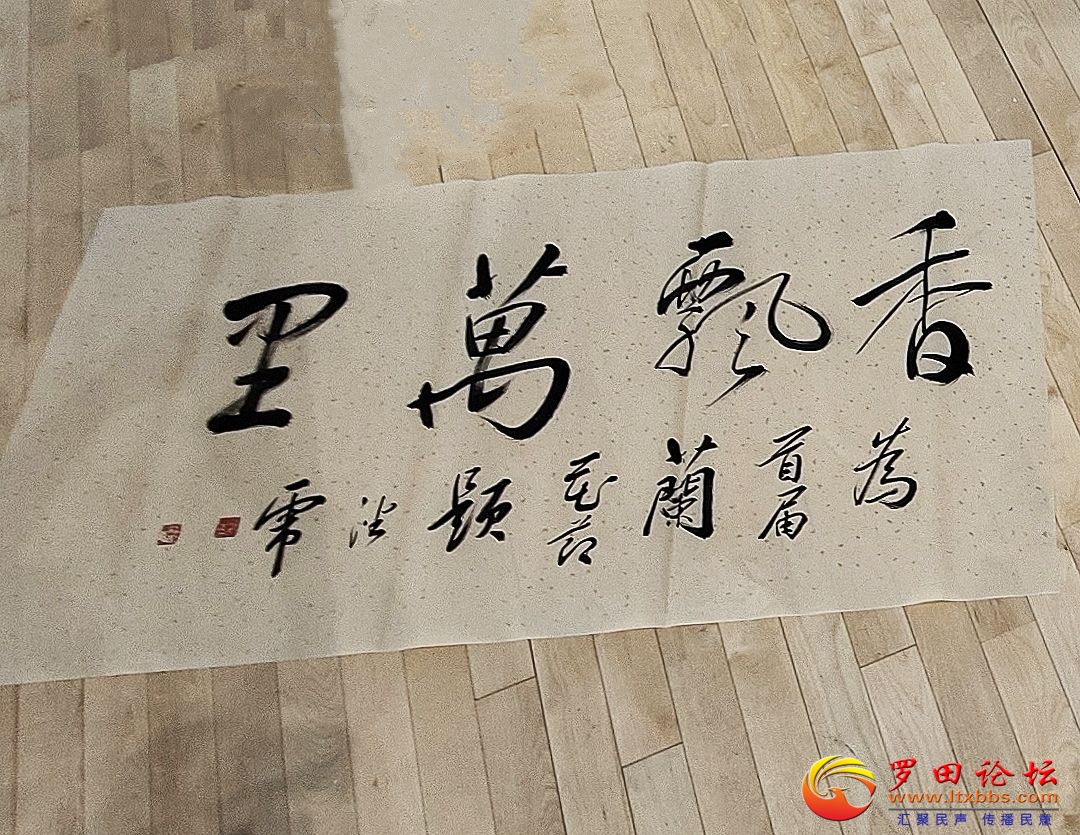 香飄萬里
為首届蘭花節題
罗田论坛
www.ltxbbs.com
汇聚民声 传播民意